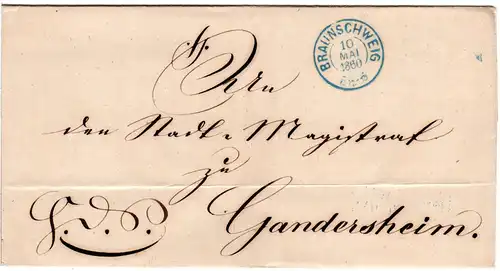 BRAUNSCHWEIG
10
MAI
1880
An
den Stadt-Magistrat
zu
Gandersheim.